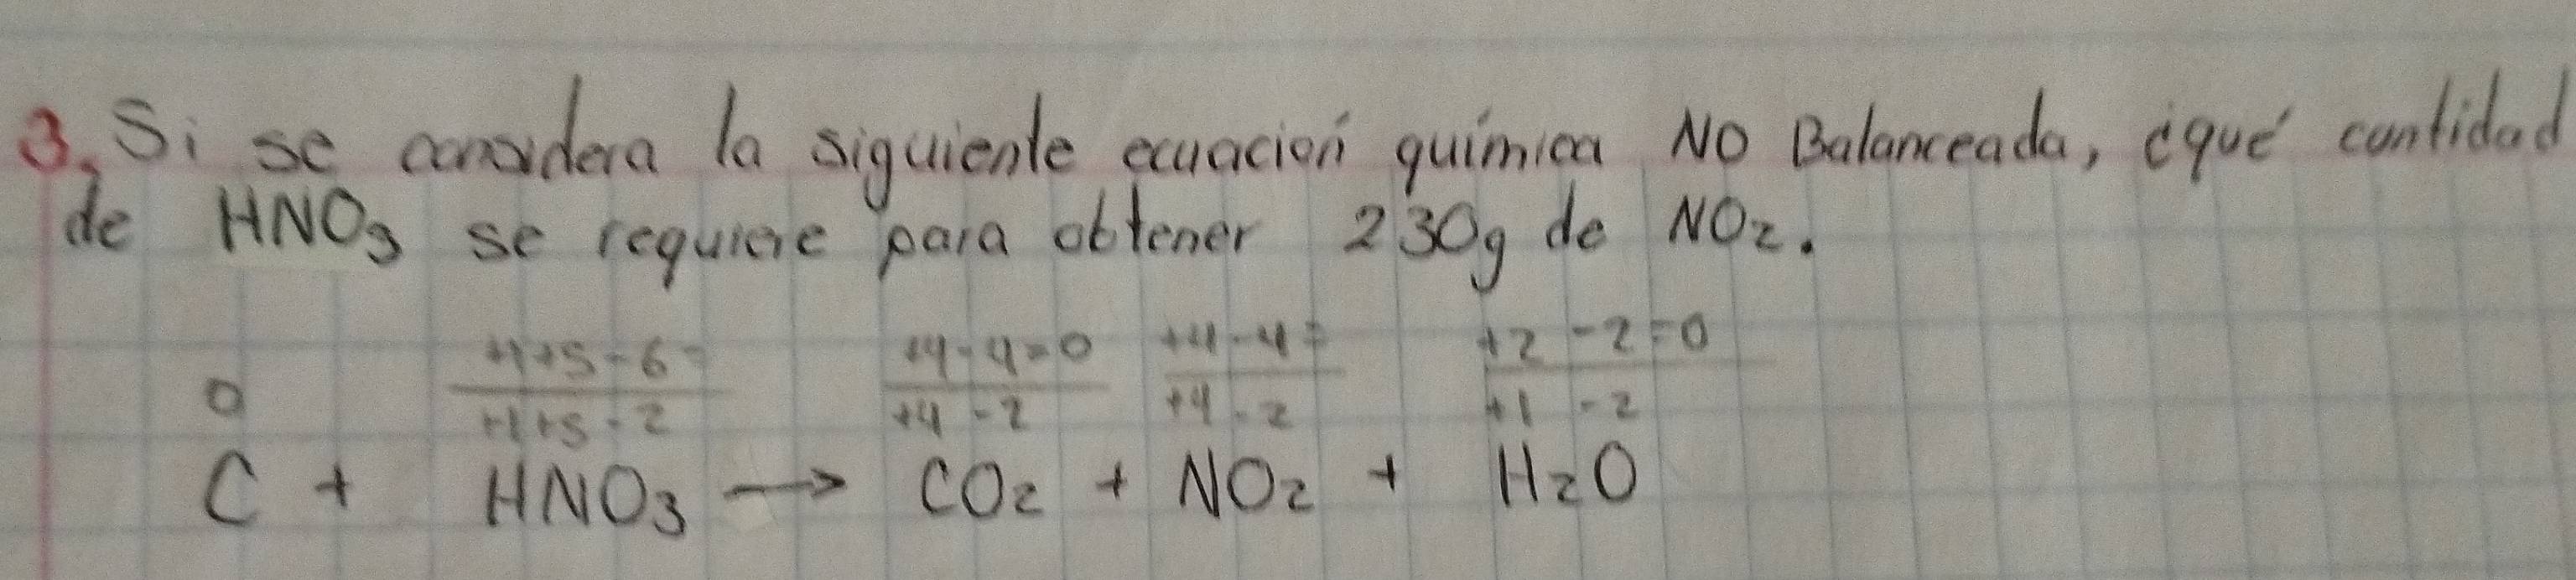 3. Si se considera la siguiente ecuación química NO Balanceada, ¿qué cantidad
de HNO₃ se requiere para obtener 230g de NO₂.
+1+5-6= +4-4=0 +4-4= +2-2=0
0 +1+5-2 +4-2 +4-2 +1-2
C + HNO₃ → CO₂ + NO₂ + H₂O